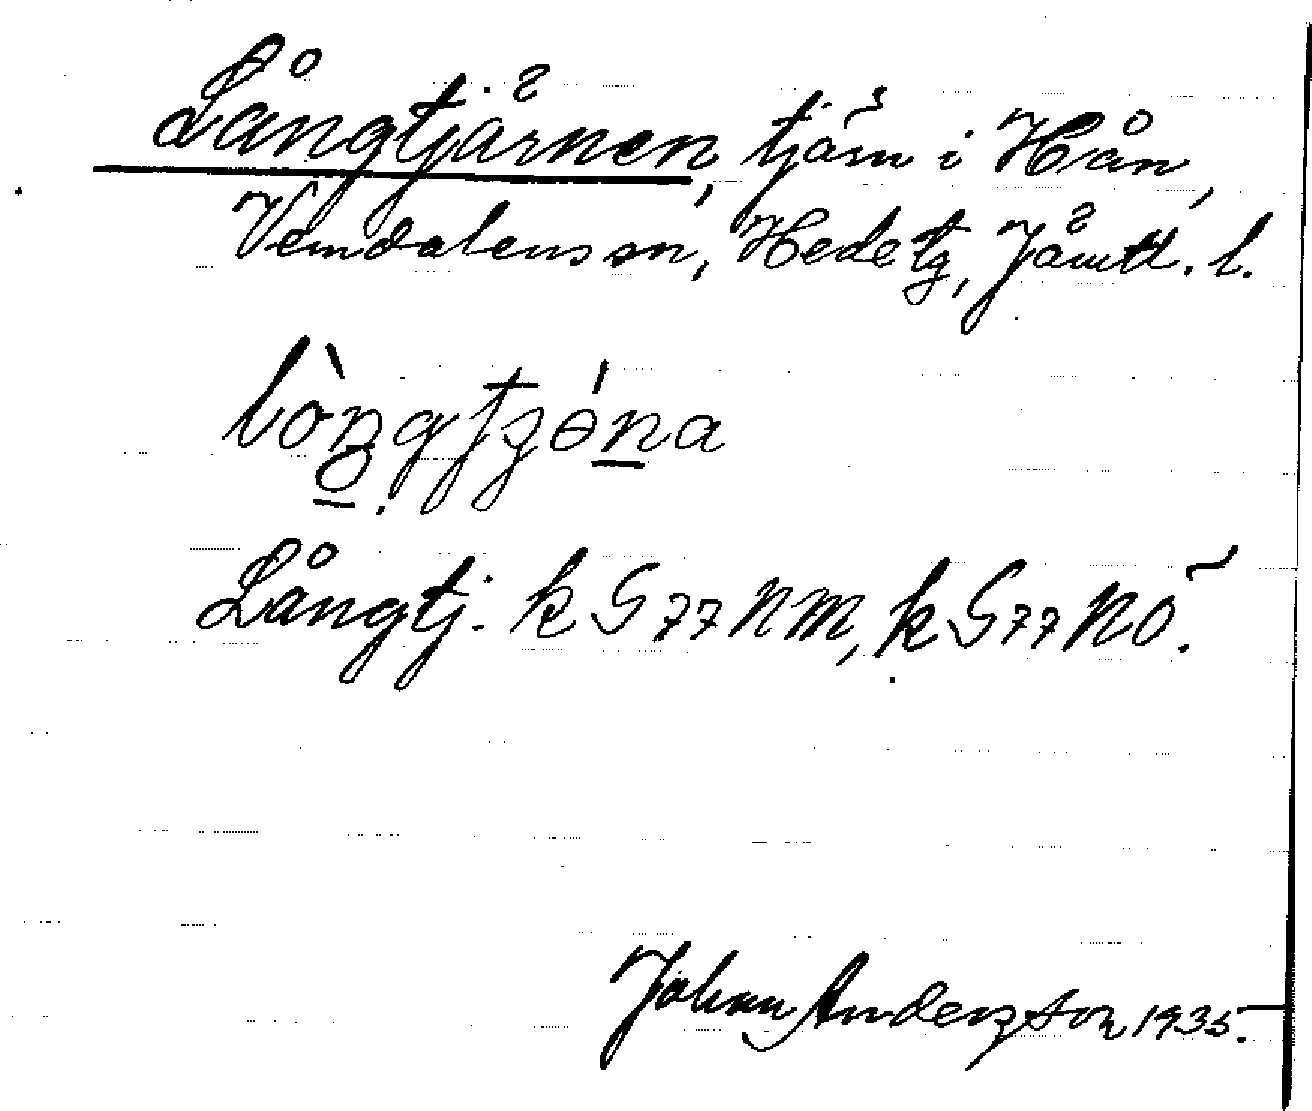 Långtjärnen, tjärn i Hån,
Vemdalens sn, Hede tg, Jämtl. l.
Långtj. k G 77 NM, k G 77 NÖ.
Johan Anderzson 1935.